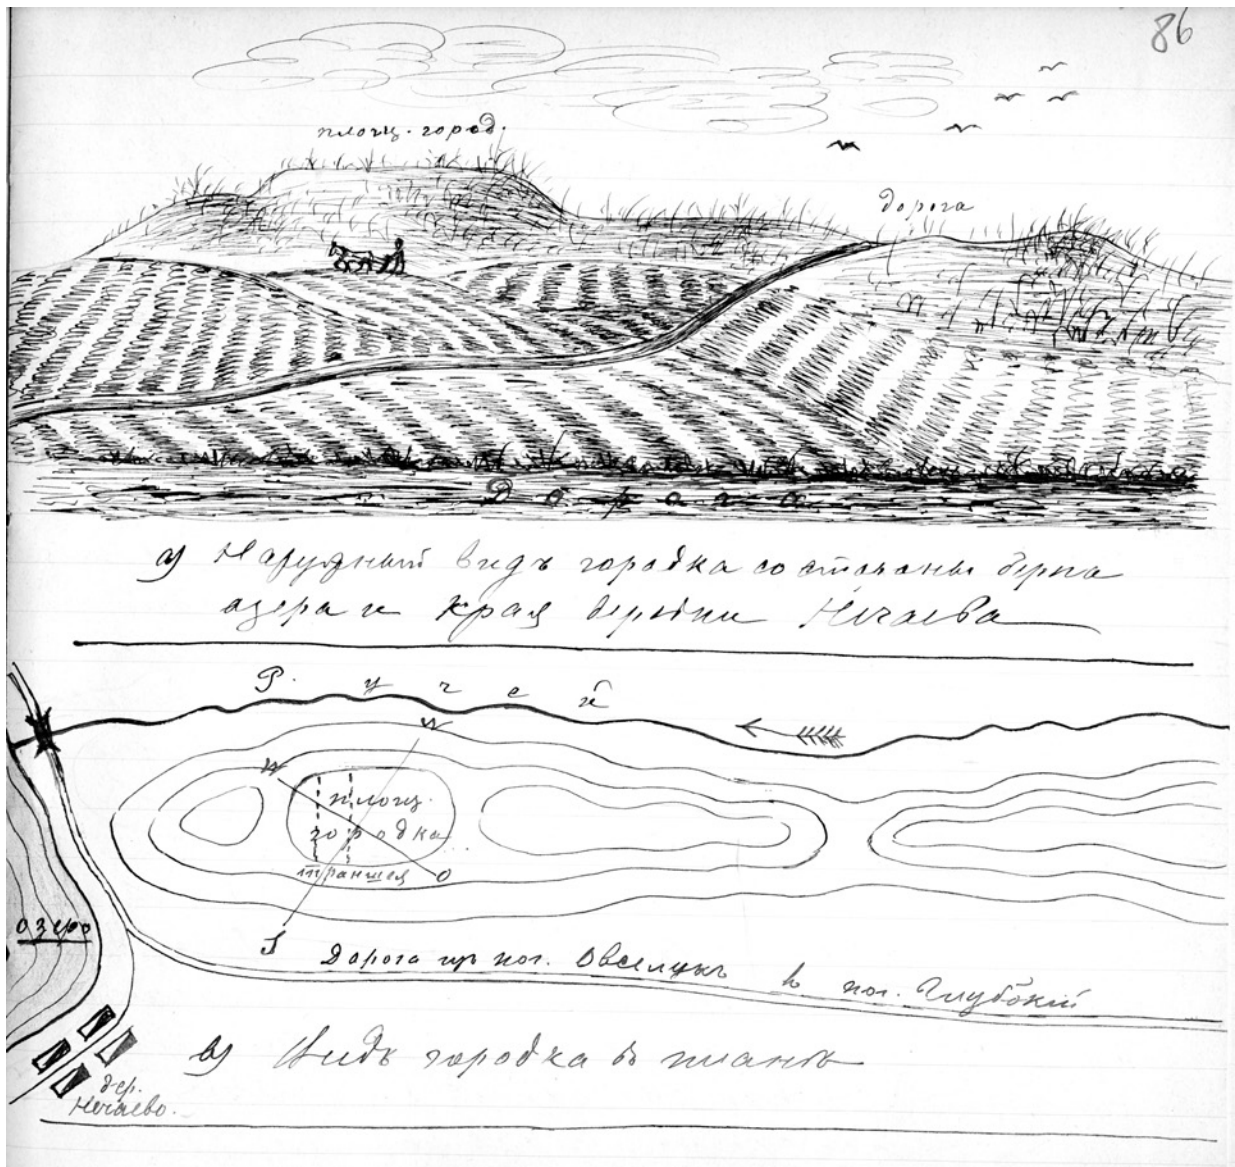 86
площ. город.
дорога
Дорога
а) Наружный видъ городка со стороны берега
озера и края деревни Нечаева
Ручей
N
W
площ.
городка
траншея
O
S
озеро
Дорога изъ пог. Овселугъ въ пог. Глубокiй
в) Видъ городка въ планѣ
дер.
Нечаево.